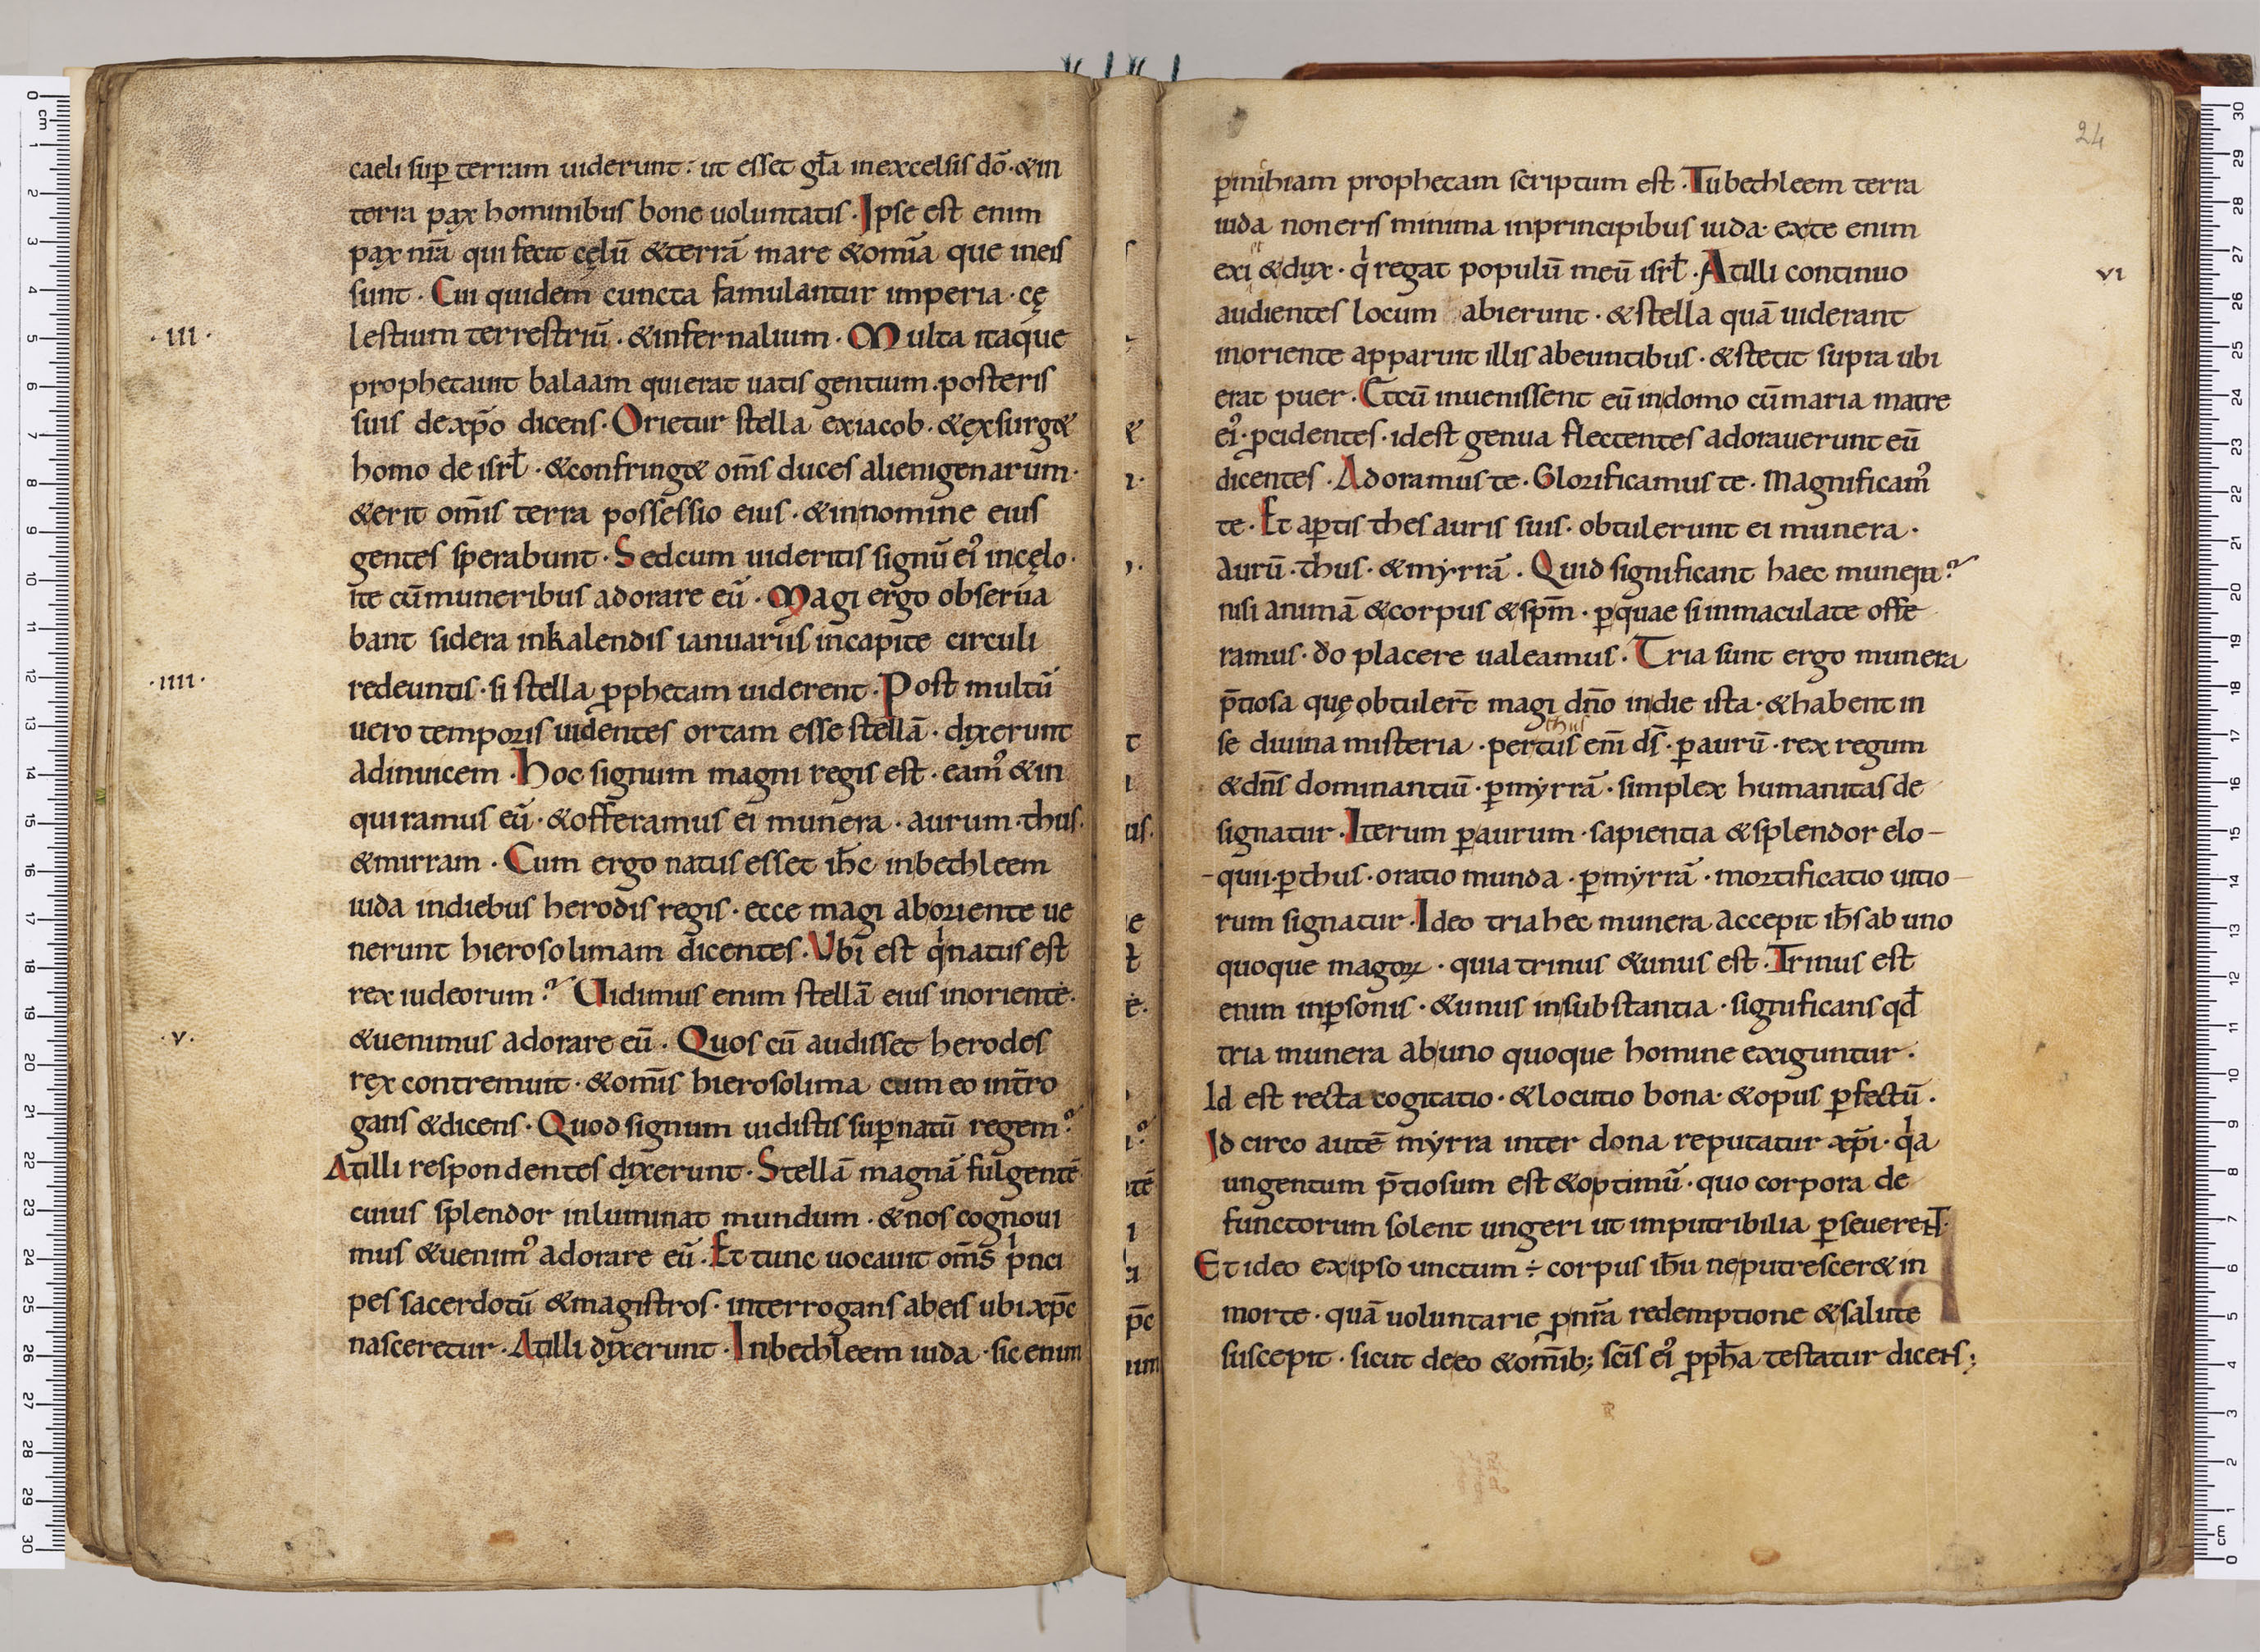 caeli sup̄ terram uiderunt: ut esset gl̄a inexcelsis dō·&in
terra pax hominibus bone uoluntatis·Ipse est enim
pax nr̄a qui fecit cęlū &terrā mare &om̄ia que ineis
sunt·Cui quidem cuncta famulantur imperia·cę
·III·
lestium terrestriū·&infernalium·Multa itaque
prophetauit balaam quierat uatis gentium·posteris
suis dexp̄o dicens·Orietur stella exiacob·&exsurg&
homo de isrł·&confring& om̄s duces alienigenarum·
&erit om̄is terra possessio eius·&innomine eius
gentes sperabunt·Sedcum uideritis signū ei᾽ incęlo·
ite cūmuneribus adorare eū·Magi ergo obserua
bant sidera inkalendis ianuariis incapite circuli
·IIII·
redeuntis·si stella ꝓphetam uiderent·Post multū
uero temporis uidentes ortam esse stellā·dixerunt
adinuicem·Hoc signum magni regis est·eam᾽ &in
quiramus eū·&offeramus ei munera·aurum·thus·
&mirram·Cum ergo natus esset ih̄c inbethleem
iuda indiebus herodis regis·ecce magi aboriente ue
nerunt hierosolimam dicentes·Vbi est qͥnatus est
rex iudeorum? Vidimus enim stellā eius inoriente·
·V·
&uenimus adorare eū·Quos cū audisset herodes
rex contremuit·&om̄is hierosolima cum eo int̄ro
gans &dicens·Quod signum uidistis suꝑnatū regem?
Atilli respondentes dixerunt·Stellā magnā fulgentē
cuius splendor inluminat mundum·&nos cognoui
mus &uenim᾽ adorare eū·Et tunc uocauit om̄s pͥnci
pes sacerdotū &magistros·interrogans abeis ubi xp̄c
nasceretur·Atilli dixerunt·Inbethleem iuda·sic enim
24
ꝑmihiam prophetam scriptum est·Tubethleem terra
iuda noneris minima inprincipibus iuda·exte enim
exi&dux·qͥ regat populū meū isrł·Atilli continuo
VI
audientes locum abierunt·&stella quā uiderant
inoriente apparuit illis abeuntibus·&stetit supra ubi
erat puer·Etcū inuenissent eū indomo cūmaria matre
ei᾽·ꝓcidentes·idest genua flectentes adorauerunt eū
dicentes·Adoramus te·Glorificamus te·Magnificam᾽
te·Et aꝑtis thesauris suis·obtulerunt ei munera·
aurū·thus·&myrrā·Quid significant haec munera?
nisi animā &corpus &sp̄m·ꝑquae si inmaculate offe
ramus·do placere ualeamus·Tria sunt ergo munera
p̄tiosa quę obtuler̄t magi dn̄o indie ista·&habent in
thus
se diuina misteria·pertus en̄i ds̄·ꝑaurū·rex regum
&dn̄s dominantiū·ꝑmyrrā·simplex humanitas de
signatur·Iterum ꝑaurum·sapientia &splendor elo-
-quii·ꝑthus·oratio munda·ꝑmyrrā·mortificatio uitio-
rum signatur·Ideo triahec munera accepit ih̄s ab uno
quoque magoꝝ·quia trinus &unus est·Trinus est
enim inꝑsonis·&unus insubstantia·significans qđ
tria munera abuno quoque homine exiguntur·
Id est recta cogitatio·&locutio bona·&opus ꝑfectū·
Id circo autē myrra inter dona reputatur xp̄i·qͥa
ungentum p̄tiosum est &optimū·quo corpora de
functorum solent ungeri ut imputribilia ꝑseuerent·
Et ideo exipso unctum ÷ corpus ih̄u neputrescer& in
morte·quā uoluntarie ꝓnr̄a redemptione &salute
suscepit·sicut deeo &om̄ib; sc̄is ei᾽ ꝓph̄a testatur dicens;